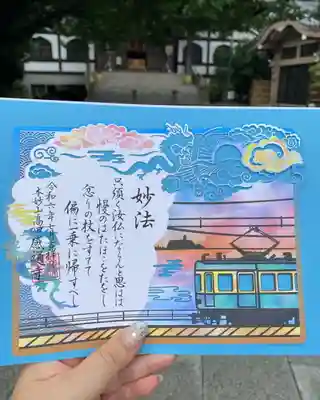 妙法
只須く汝仏にならんと思はは
慢のはたほこをたをし
忿りの杖をすてて
偏に一乗に帰すへし
令和六年七月
本妙山高
感應寺